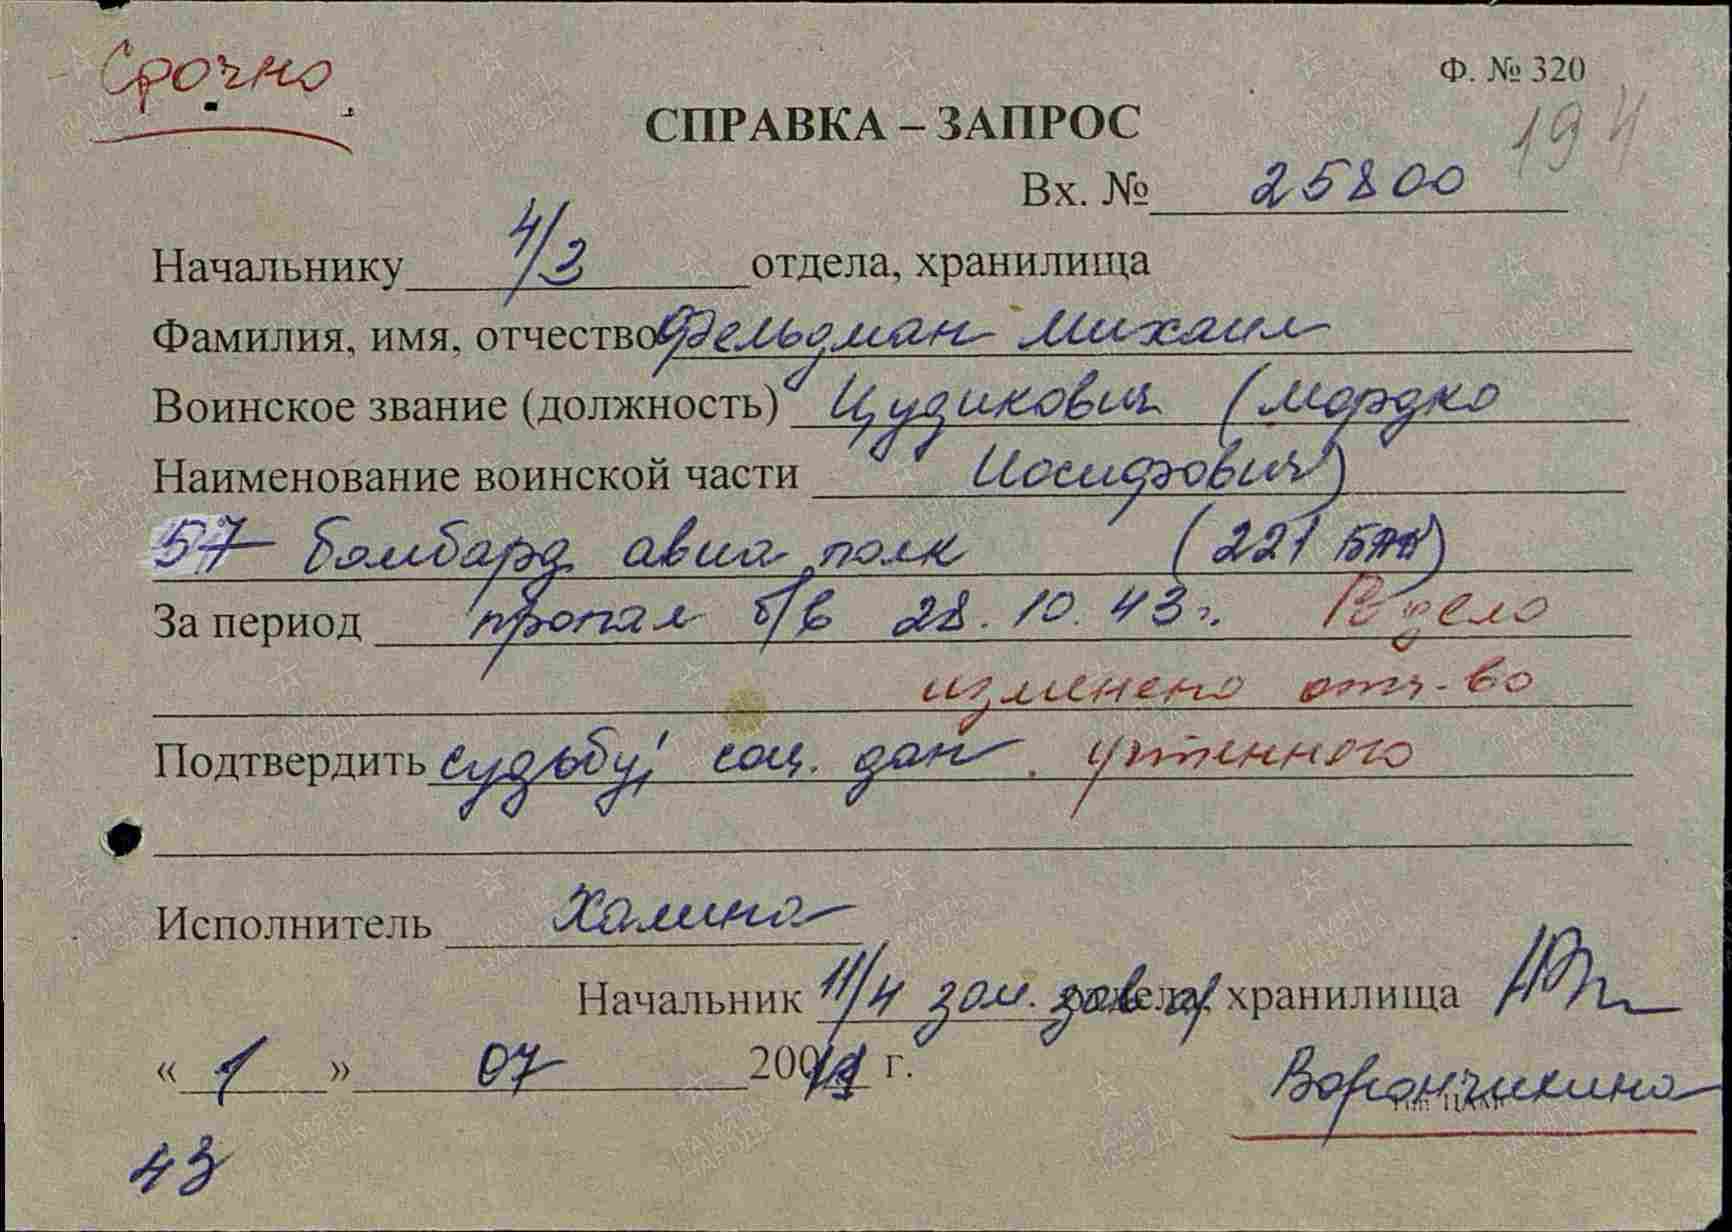 Срочно
Ф. № 320
СПРАВКА – ЗАПРОС
194
Вх. № 25800
Начальнику 4/3 отдела, хранилища
Фамилия, имя, отчество Фельдман Михаил
Воинское звание (должность) Цудикович (Мордко
Наименование воинской части Иосифович)
57 бомбард авиа полк (221 БАД)
За период пропал б/в 28.10.43 г. В дело
изменено отч-во
Подтвердить судьбу, соц. дан. учтенного
Исполнитель Халина
Начальник 11/4 зам. зав. отдела, хранилища
« 1 » 07 200 г.
Ворончихина
Тип. ЦАМО
43